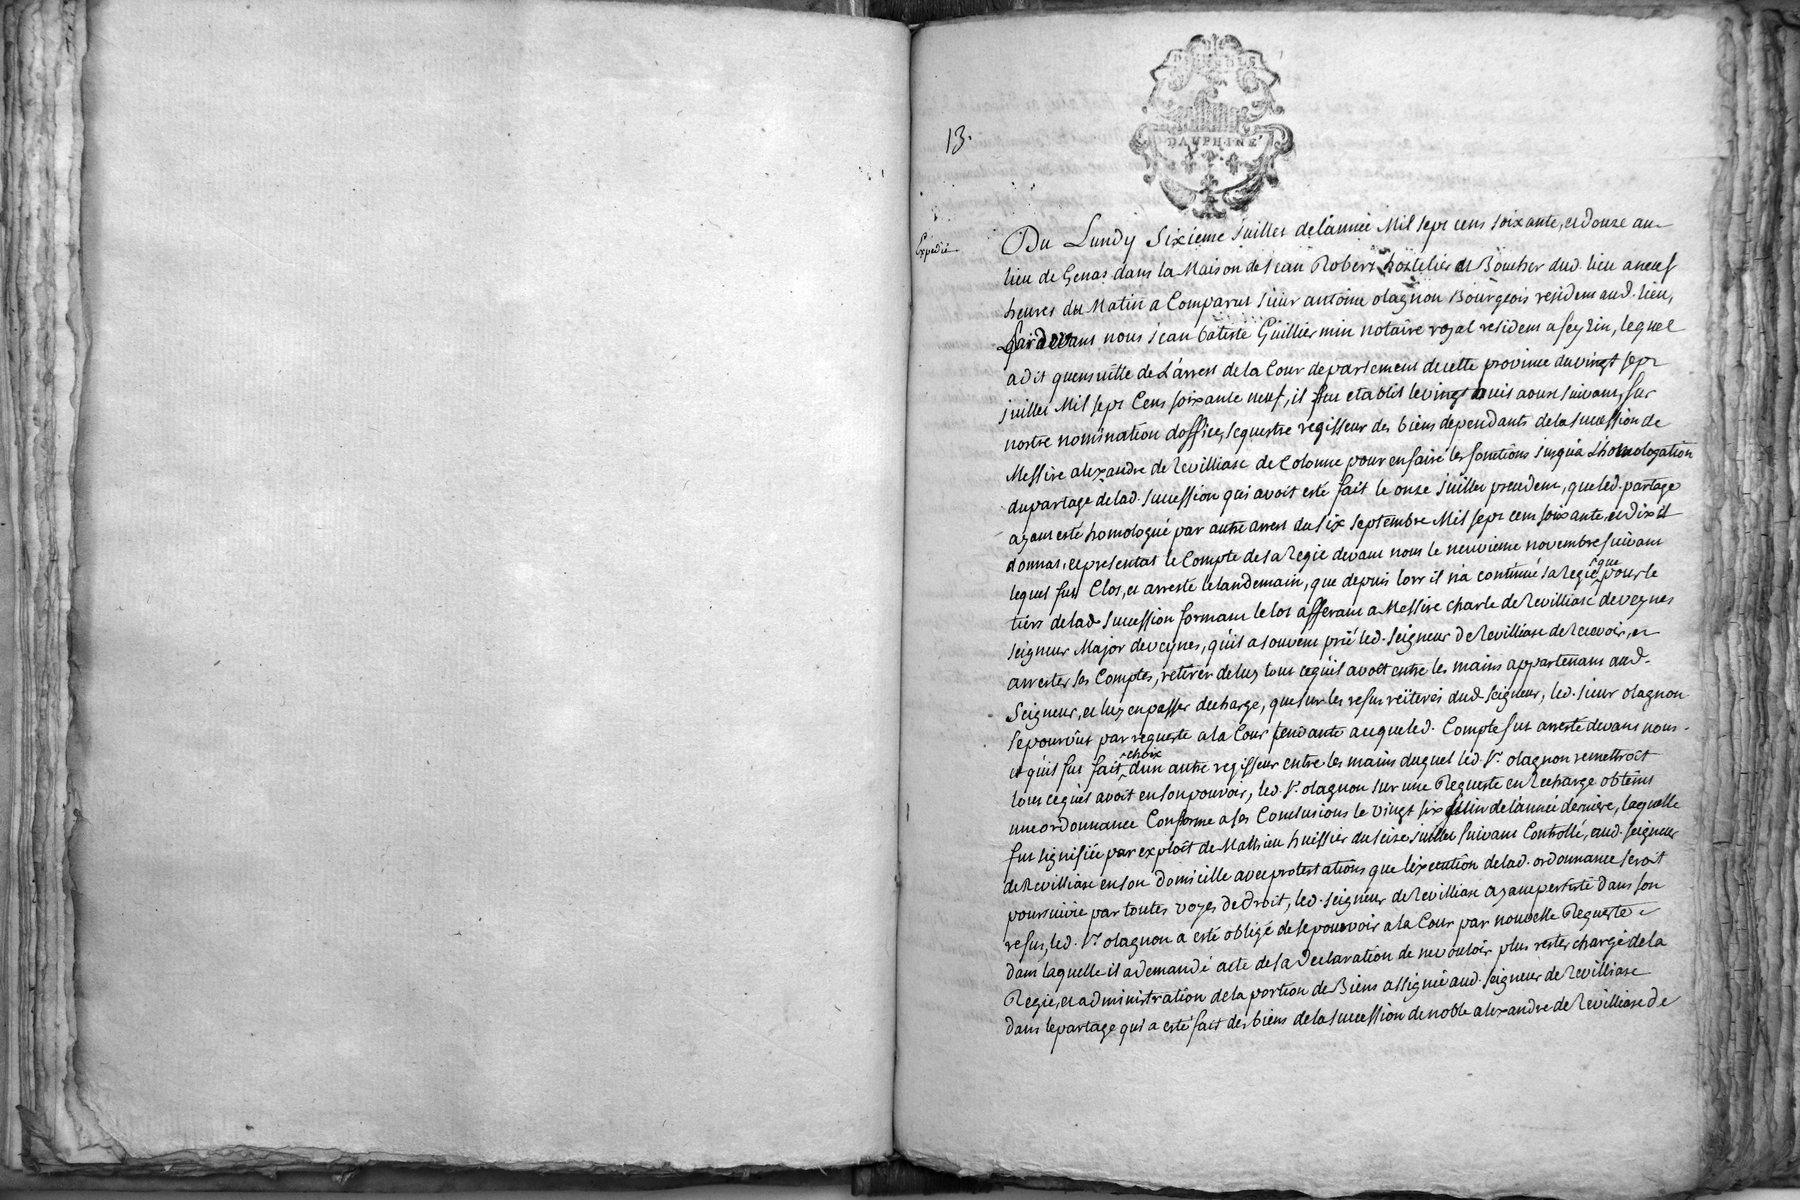 13.
DAUPHINÉ
Expedié
Du Lundy sixieme juillet de l'année Mil sept cens soixante, et douze au
lieu de Genas dans la Maison de jean Robert hostelier et Boucher dud. lieu a neuf
heures du Matin a Comparut sieur antoine olagnon Bourgeois resident aud. lieu,
Pardevant nous jean batiste Guilliermin notaire royal resident a seyzin, lequel
a dit qu'ensuitte de L'arrest de la Cour de parlement de cette province du vingt sept
juillet Mil sept Cens soixante neuf, il fut etablit le vingt huit aoust suivant, sur
nostre nomination d'office, sequestre regisseur des biens dependants de la succession de
Messire alexandre de Revilliasc de Colonne pour en faire les fonctions jusqu'a L'homologation
du partage de lad. succession qui avoit esté fait le onze juillet precedent, que led. partage
ayant esté homologué par autre arrest du six septembre Mil sept cens soixante, et dix il
donnat, et presentat le Compte de sa Regie devant nous le neuvieme novembre suivant
lequel fut Clos, et arresté le landemain, que depuis lorr il n'a continué sa regie, que pour le
tiers de lad. succession formant le lot afferant a Messire charle de Revilliasc de veynes
seigneur Major de veynes, qu'il a souvent prié led. seigneur de Revilliasc de recevoir, et
arrester ses Comptes, retirer de luy tout ce qu'il avoit entre les mains appartenant aud.
Seigneur, et luy en passer decharge, que sur les refus reïterés dud. seigneur, led. sieur olagnon
se pourvût par requeste a la Cour tendante a ce que led. Compte fut arresté devant nous
et qu'il fut fait choix d'un autre regisseur entre les mains duquel led. Sr. olagnon remettroit
tout ce qu'il avoit en son pouvoir, led. Sr. olagnon sur une Requeste en Recharge obtint
une ordonnance Conforme a ses Conclusions le vingt six juin de l'année derniere, laquelle
fut signifiée par exploit de Mathieu huissier du seize juillet suivant Controllé, aud. seigneur
de Revilliasc en son domicille avec protestations que l'execution de lad. ordonnance seroit
poursuivie par toutes voyes de droit, led. seigneur de Revilliasc ayant persisté dans son
refus, led. Sr. olagnon a esté obligé de se pourvoir a la Cour par nouvelle Requeste
dans laquelle il a demandé acte de sa declaration de ne vouloir plus rester chargé de la
Regie, et administration de la portion de Biens assignée aud. seigneur de Revilliasc
dans le partage qui a esté fait des biens de la succession de noble alexandre de Revilliasc de